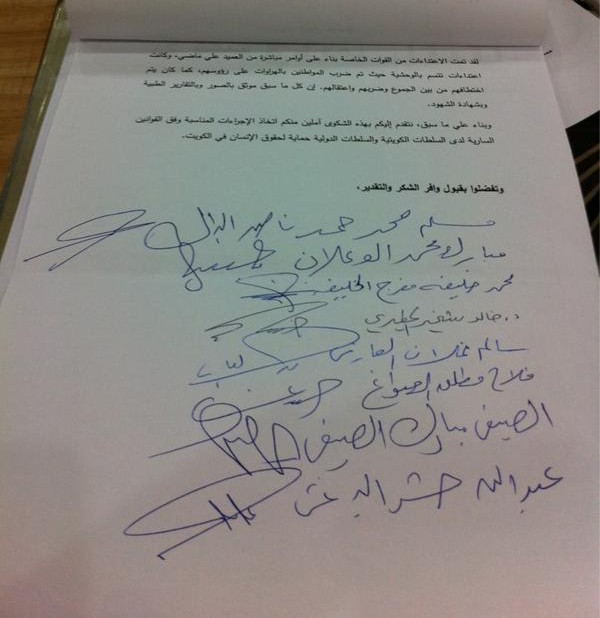 لقد تمت الاعتداءات من القوات الخاصة بناء على أوامر مباشرة من العميد علي ماضي، وكانت
اعتداءات تتسم بالوحشية حيث تم ضرب المواطنين بالهراوات على رؤوسهم، كما كان يتم
اختطافهم من بين الجموع وضربهم واعتقالهم. إن كل ما سبق موثق بالصور وبالتقارير الطبية
وبشهادة الشهود.
وبناء علي ما سبق، نتقدم إليكم بهذه الشكوى آملين منكم اتخاذ الإجراءات المناسبة وفق القوانين
السارية لدى السلطات الكويتية والسلطات الدولية حماية لحقوق الإنسان في الكويت.
وتفضلوا بقبول وافر الشكر والتقدير،
مسلم محمد حمد ناصر البراك
مبارك محمد الوعلان
محمد خليفه مفرج الخليفه
د. خالد شخير المطيري
سالم نملان العازمي
فلاح مطلق الصواغ
الصيفي مبارك الصيفي
عبدالله حشر البرغش